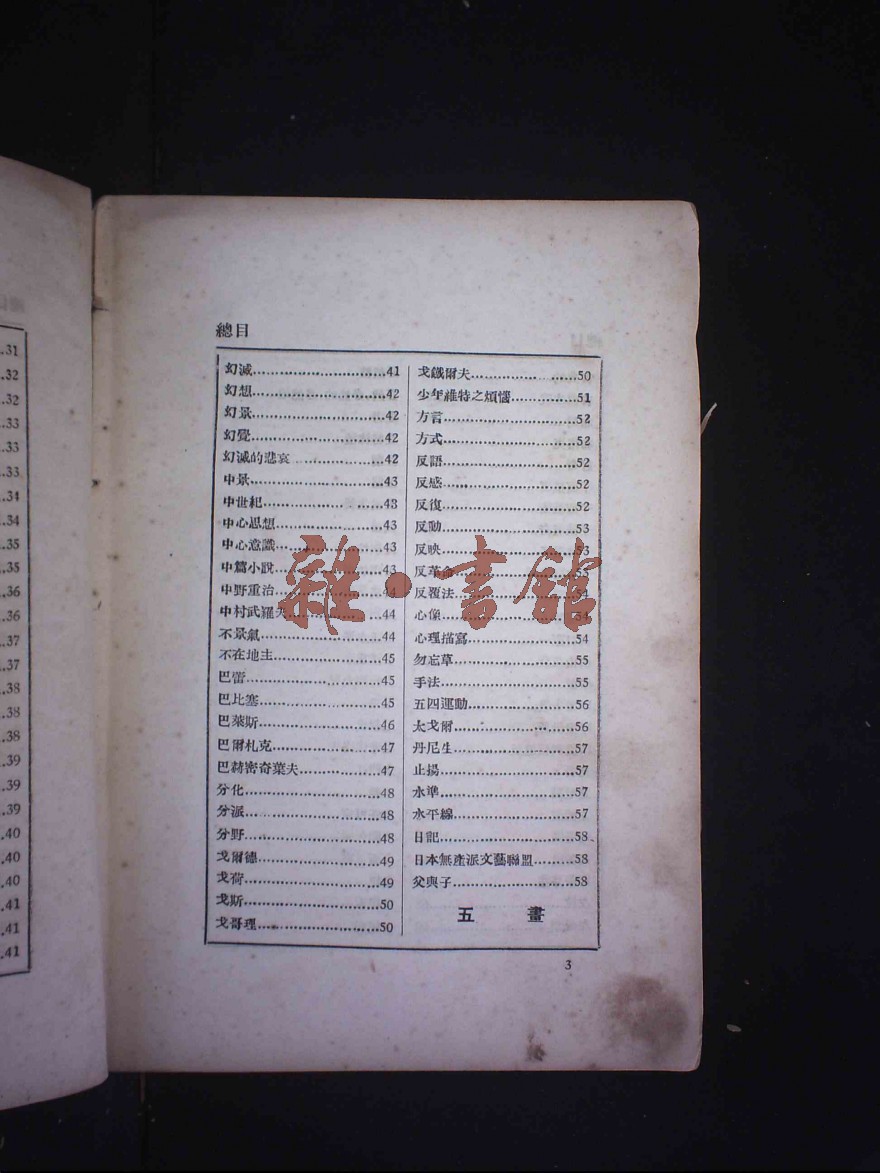 .31
.32
.32
.33
.33
.33
.34
.34
.35
.35
.36
.37
.37
.38
.38
.38
.39
.39
.39
.40
.40
.40
.41
.41
.41
總目
幻滅…………41
幻想…………42
幻景…………42
幻覺…………42
幻滅的悲哀…………42
中景…………43
中世紀…………43
中心思想…………43
中心意識…………43
中篇小說…………43
中野重治…………44
中村武羅夫…………44
不景氣…………44
不在地主…………45
巴蕾…………45
巴比塞…………45
巴萊斯…………46
巴爾札克…………47
巴赫密奇葉夫…………47
分化…………48
分派…………48
分野…………48
戈爾德…………49
戈荷…………49
戈斯…………50
戈哥理…………50
戈鐵爾夫…………50
少年維特之煩惱…………51
方言…………52
方式…………52
反語…………52
反感…………52
反復…………52
反動…………53
反映…………53
反革命…………53
反覆法…………54
心像…………54
心理描寫…………54
勿忘草…………55
手法…………55
五四運動…………56
太戈爾…………56
丹尼生…………57
止揚…………57
水準…………57
水平線…………57
日記…………58
日本無產派文藝聯盟…………58
父與子…………58
五 畫
3
雜·書館